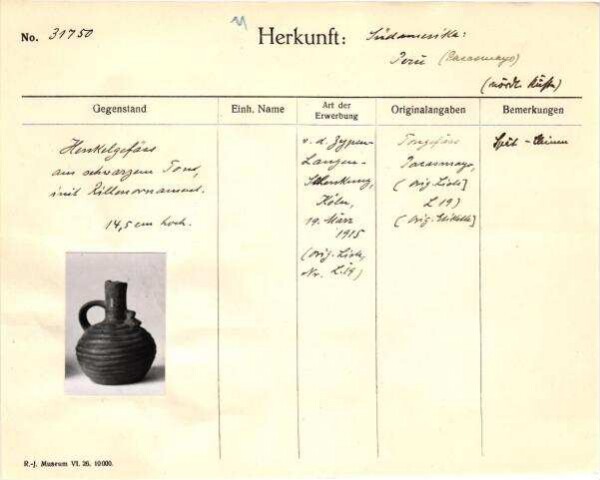 No. 31750
Herkunft: Südamerika:
Peru (Pacasmayo)
(nördl. Küste)
Gegenstand
Einh. Name
Art der Erwerbung
Originalangaben
Bemerkungen
Henkelgefäss
aus schwarzem Tone,
mit Rillenornament.
14,5 cm hoch.
v. d. Zypen-
Langen-
Schenkung,
Köln,
19. März
1915
(Orig. Liste,
Nr. L 19)
Tongefäss
Pacasmayo,
(Orig. Liste]
L 19)
(Orig. Etikette]
Spät-Chimu
R.-J. Museum VI. 26. 10000.